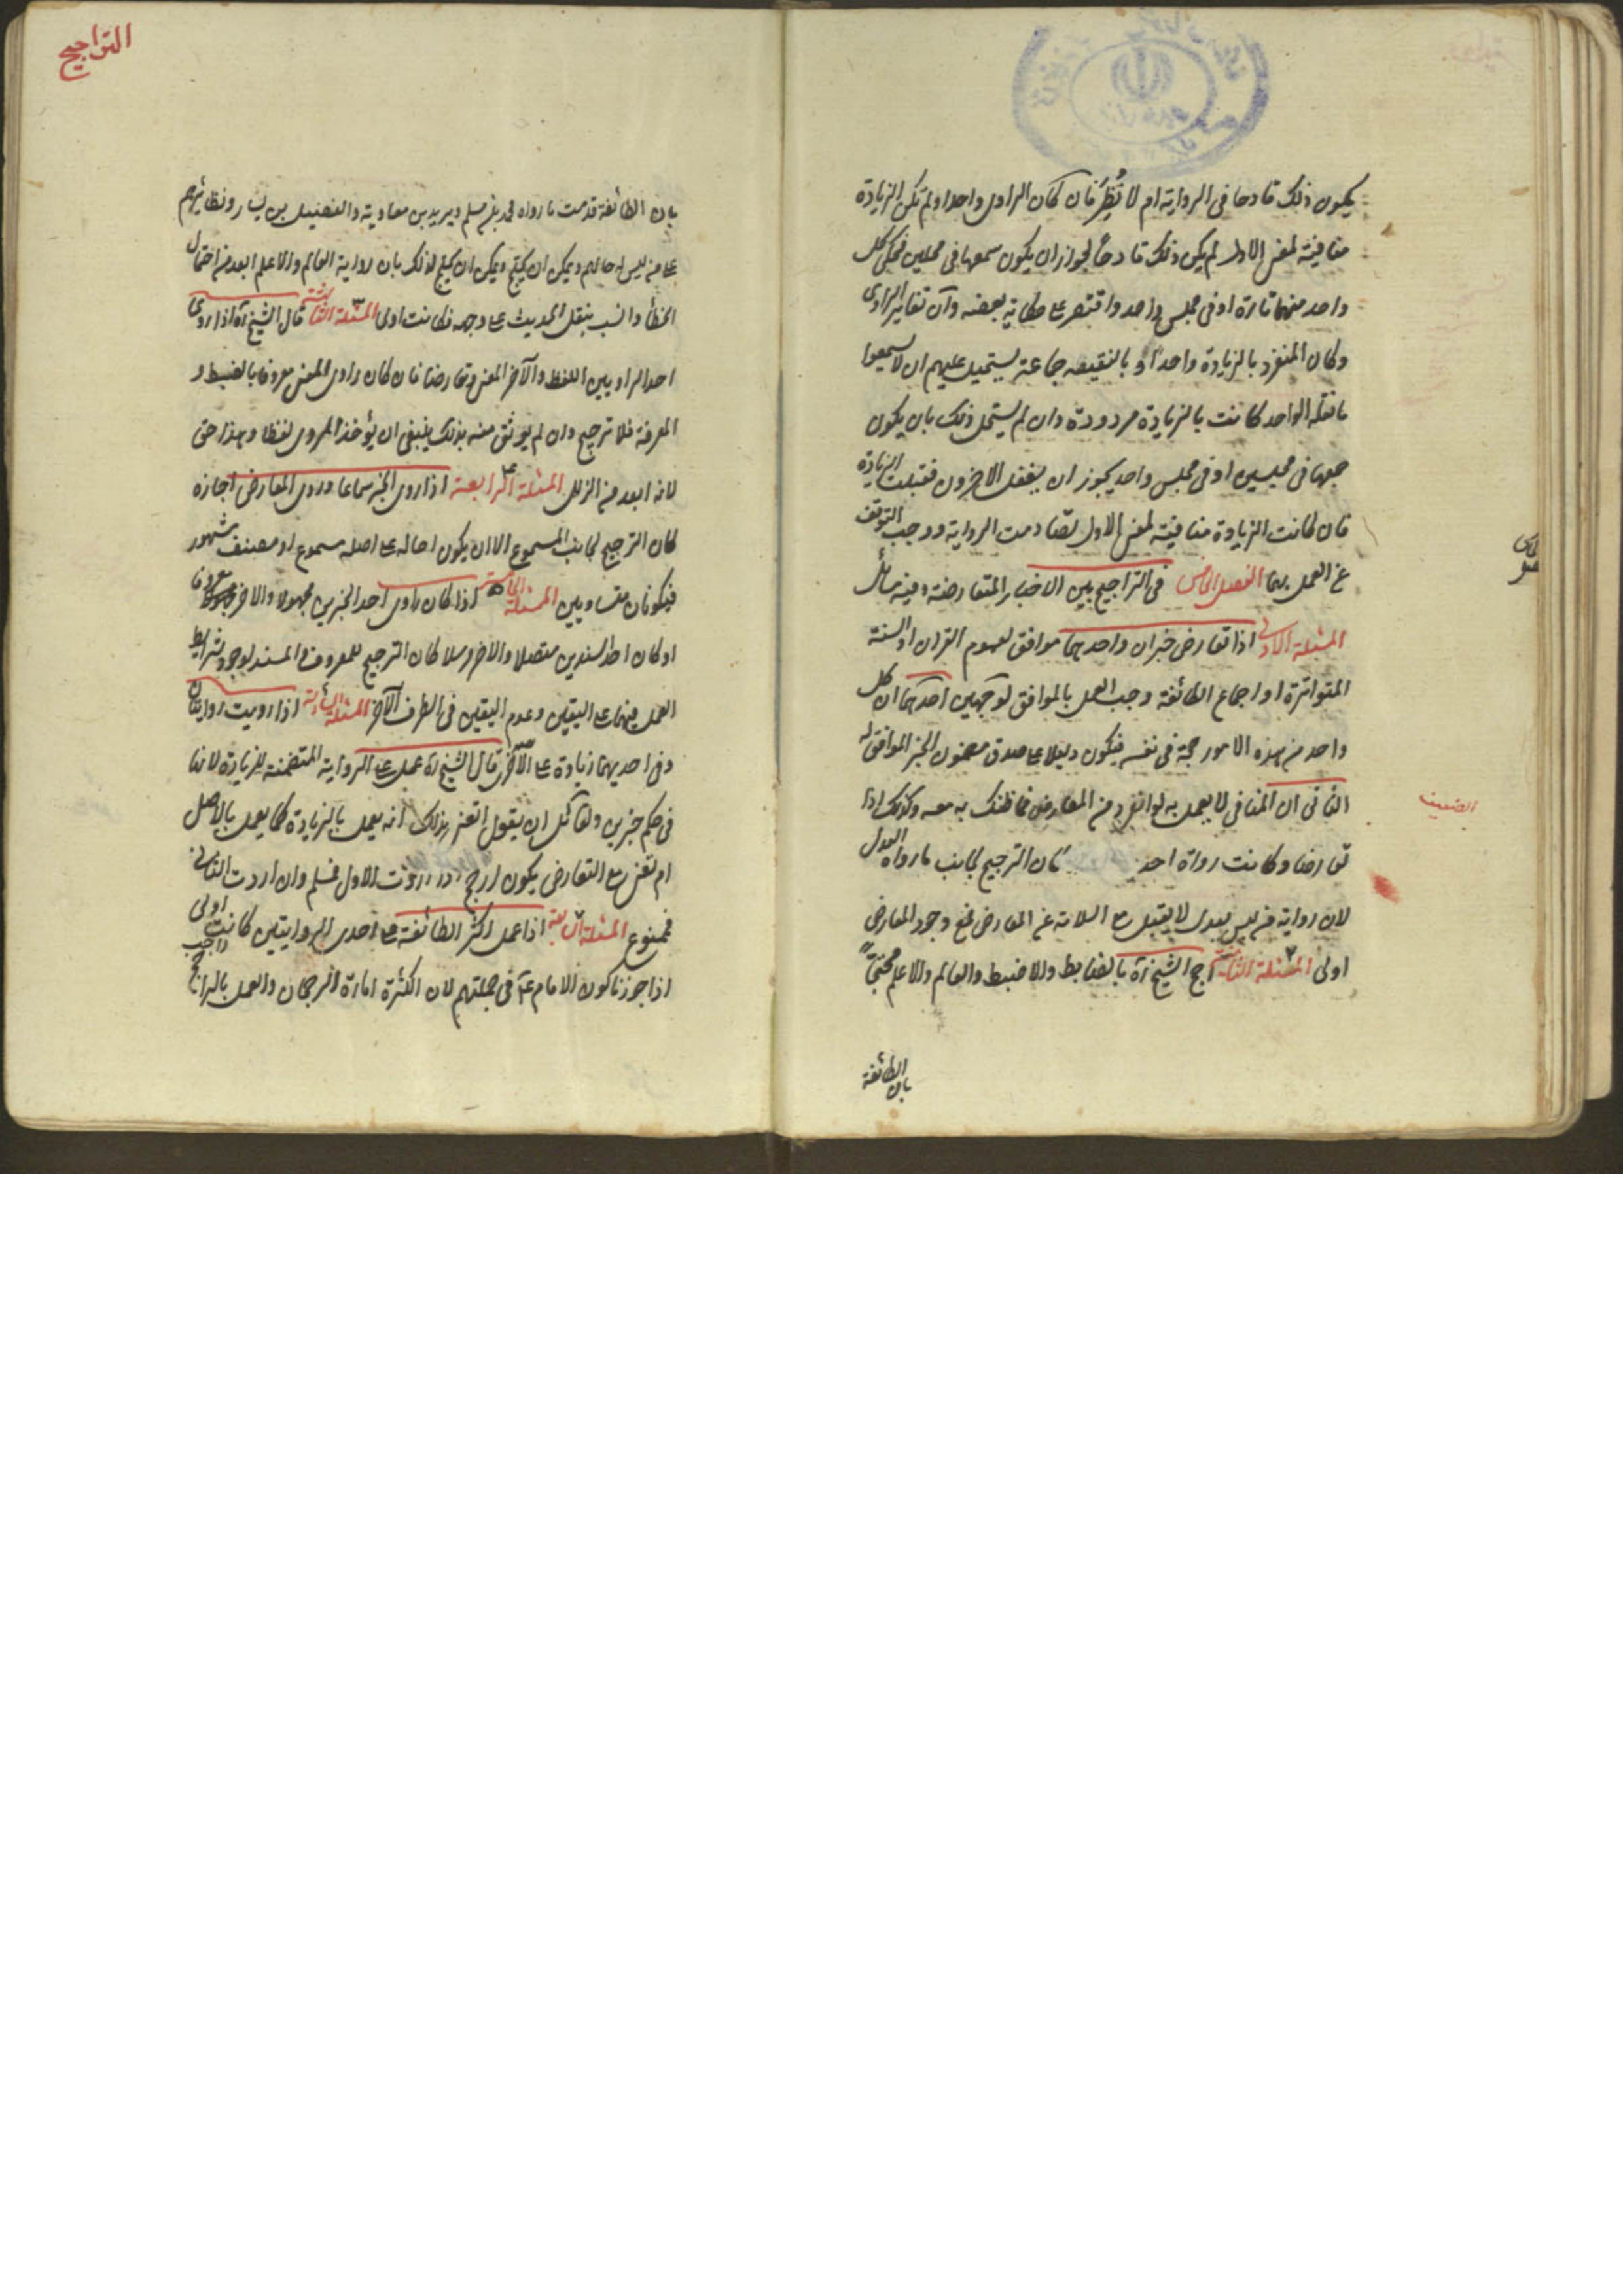 يكون ذلك قادحا فى الرواية ام لا نُظِرَ فان كان الراوى واحدا ولم تكن الزيادة
منافية لمعنى الاول لم يكن ذلك قادحاً لجواز ان يكون سمعها فى مجلسين فحكى كل
واحد منهما تارة او فى مجلس واحد واقتصر على حكاية بعضه وان تغاير الراوى
وكان المنفرد بالزيادة واحداً و بالنقيصه جماعة يستحيل عليهم ان لا يسمعوا
ما نقله الواحد كانت بالزيادة مردودة وان لم يستحل ذلك بان يكون
جمعها فى مجلسين او فى مجلس واحد يجوز ان يغفل الاخرون فقبلت الزيادة
فان كانت الزيادة منافية لمعنى الاول تصادمت الرواية ووجب التوقف
عن العمل بهما الفصل الخامس فى التراجيح بين الاخبار المتعارضة وفيه مسائل
المسئلة الاولى اذا تعارض خبران واحدهما موافق لعموم القران او السنة
المتواترة او اجماع الطائفة وجب العمل بالموافق لوجهين احدهما ان كل
واحد من هذه الامور حجة فى نفسه فيكون دليلا على صدق مضمون الخبر الموافق له
الثانى ان المنافى لا يعمل به لو انفرد عن المعارض فما ظنك به معه وكذلك اذا
الضعيف
تعارضا وكانت رواة احد كان الترجيح لجانب ما رواه العدل
لان رواية من ليس بعدل لا يقبل مع السلامة عن المعارض فمع وجود المعارض
اولى المسئلة الثانية رجح الشيخ ره بالضابط والاضبط والعالم والاعلم محتجّاً
بان الطائفة
التراجيح
بان الطائفة قدمت ما رواه محمد بن مسلم وبريد بن معاوية والفضيل بن يسار ونظائرهم
على من ليس له حالهم ويمكن ان يحتج ويمكن ان يحتج لذلك بان رواية العالم والاعلم ابعد من احتمال
الخطأ وانسب بنقل الحديث على وجهه فكانت اولى المسئلة الثالثة قال الشيخ ره اذا روى
احد الراويين اللفظ والآخر المعنى وتعارضا فان كان راوى المعنى معروفا بالضبط و
المعرفة فلا ترجيح وان لم يوثق منه بذلك ينبغى ان يؤخذ المروى لفظا وهذا حق
لانه ابعد من الزلل المسئلة الرابعة اذا روى الخبر سماعا وروى المعارض اجازة
كان الترجيح لجانب المسموع الا ان يكون احاله على اصله مسموع او مصنف مشهور
فيكونان متساويين المسئلة الخامسة اذا كان راوى احد الخبرين مجهولا والاخر معروفا
او كان احد السندين متصلا والاخر مرسلا كان الترجيح للمعروف والمسند لوجود شرايط
العمل فيهما على اليقين وعدم اليقين فى الطرف الآخر المسئلة السادسة اذا رويت روايتان
وفى احديهما زيادة على الآخر قال الشيخ ره عمل على الرواية المتضمنة للزيادة لانها
فى حكم خبرين ولقائل ان يقول اتعنى بذلك انه يعمل بالزيادة كما يعمل بالاصل
ام تعنى مع التعارض يكون ارجح اردت الاول فمسلم وان اردت الثانى
فممنوع المسئلة السابعة اذا عمل اكثر الطائفة على احدى الروايتين كانت اولى
اذا جوزنا كون الامام ع فى جملتهم لان الكثرة امارة الرجحان والعمل بالراجح واجب